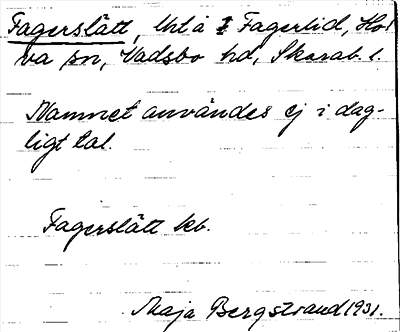 Fagerslätt, lht å Fagerlid, Ho-
va sn, Vadsbo hd, Skarab. l.
Namnet användes ej i dag-
ligt tal.
Fagerslätt kb.
Maja Bergstrand 1931.